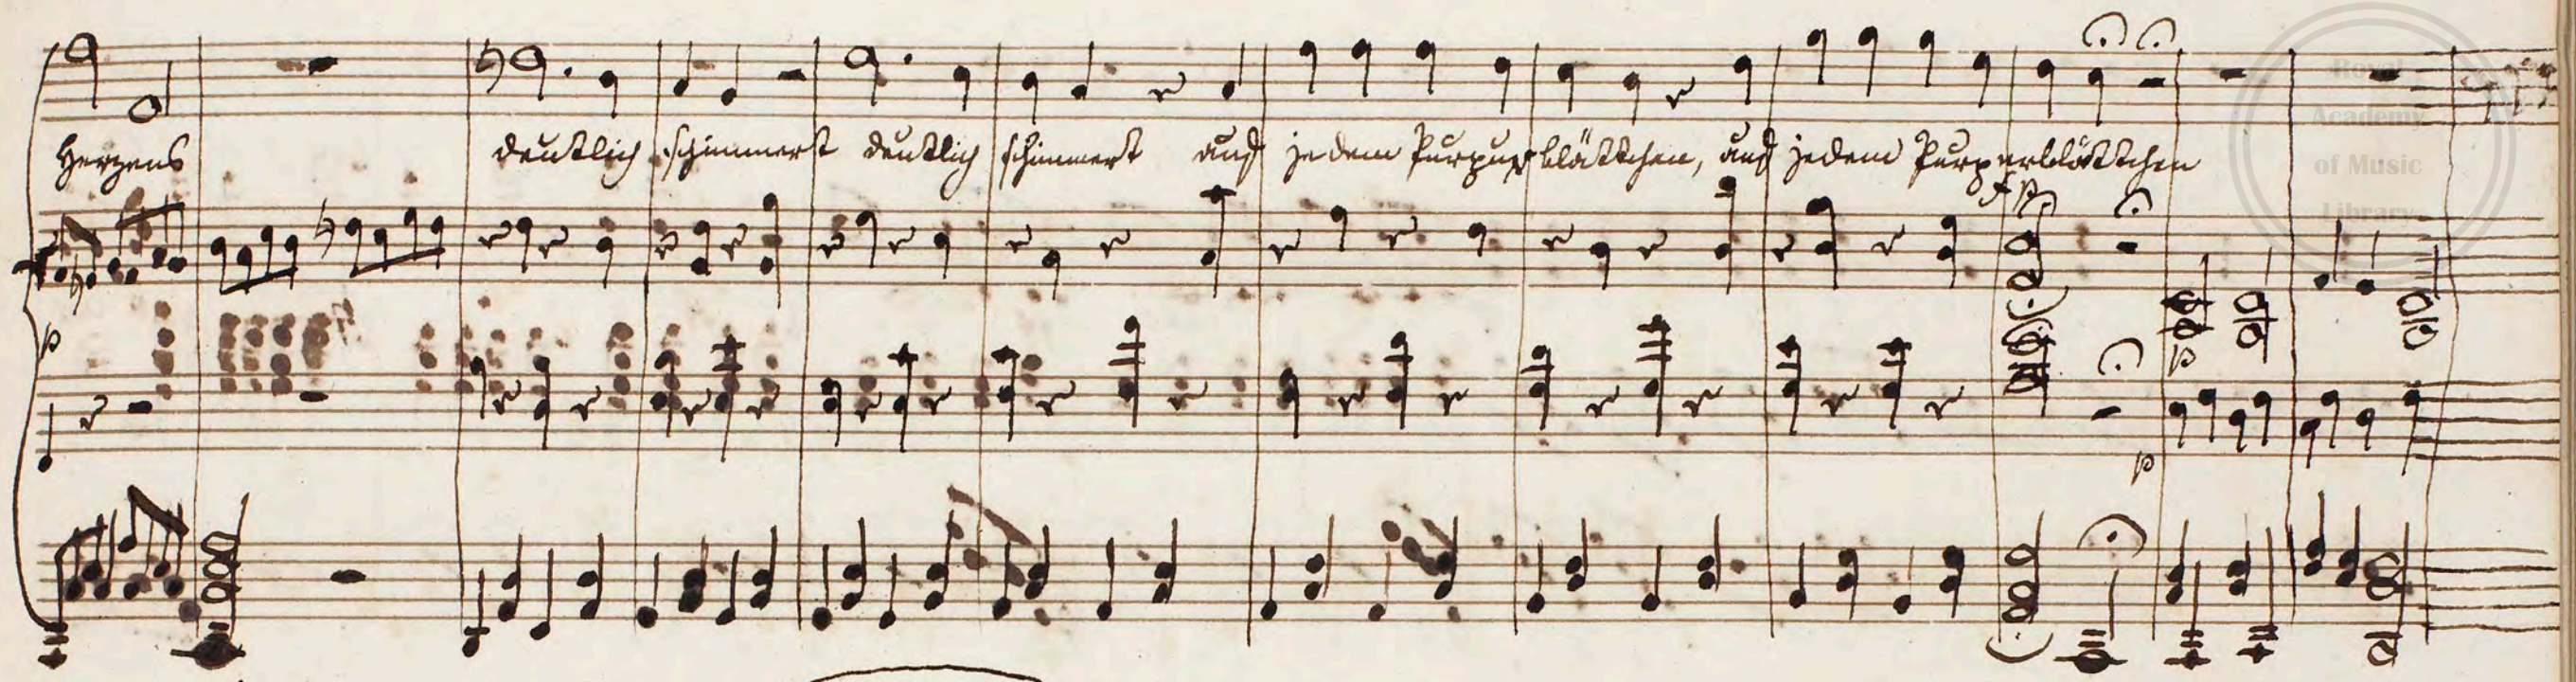 Herzens deutlich schimmert deutlich schimmert auf jedem Purpurblättchen, auf jedem Purpurblättchen
fp
p
p
p
Royal
Academy
of Music
Library